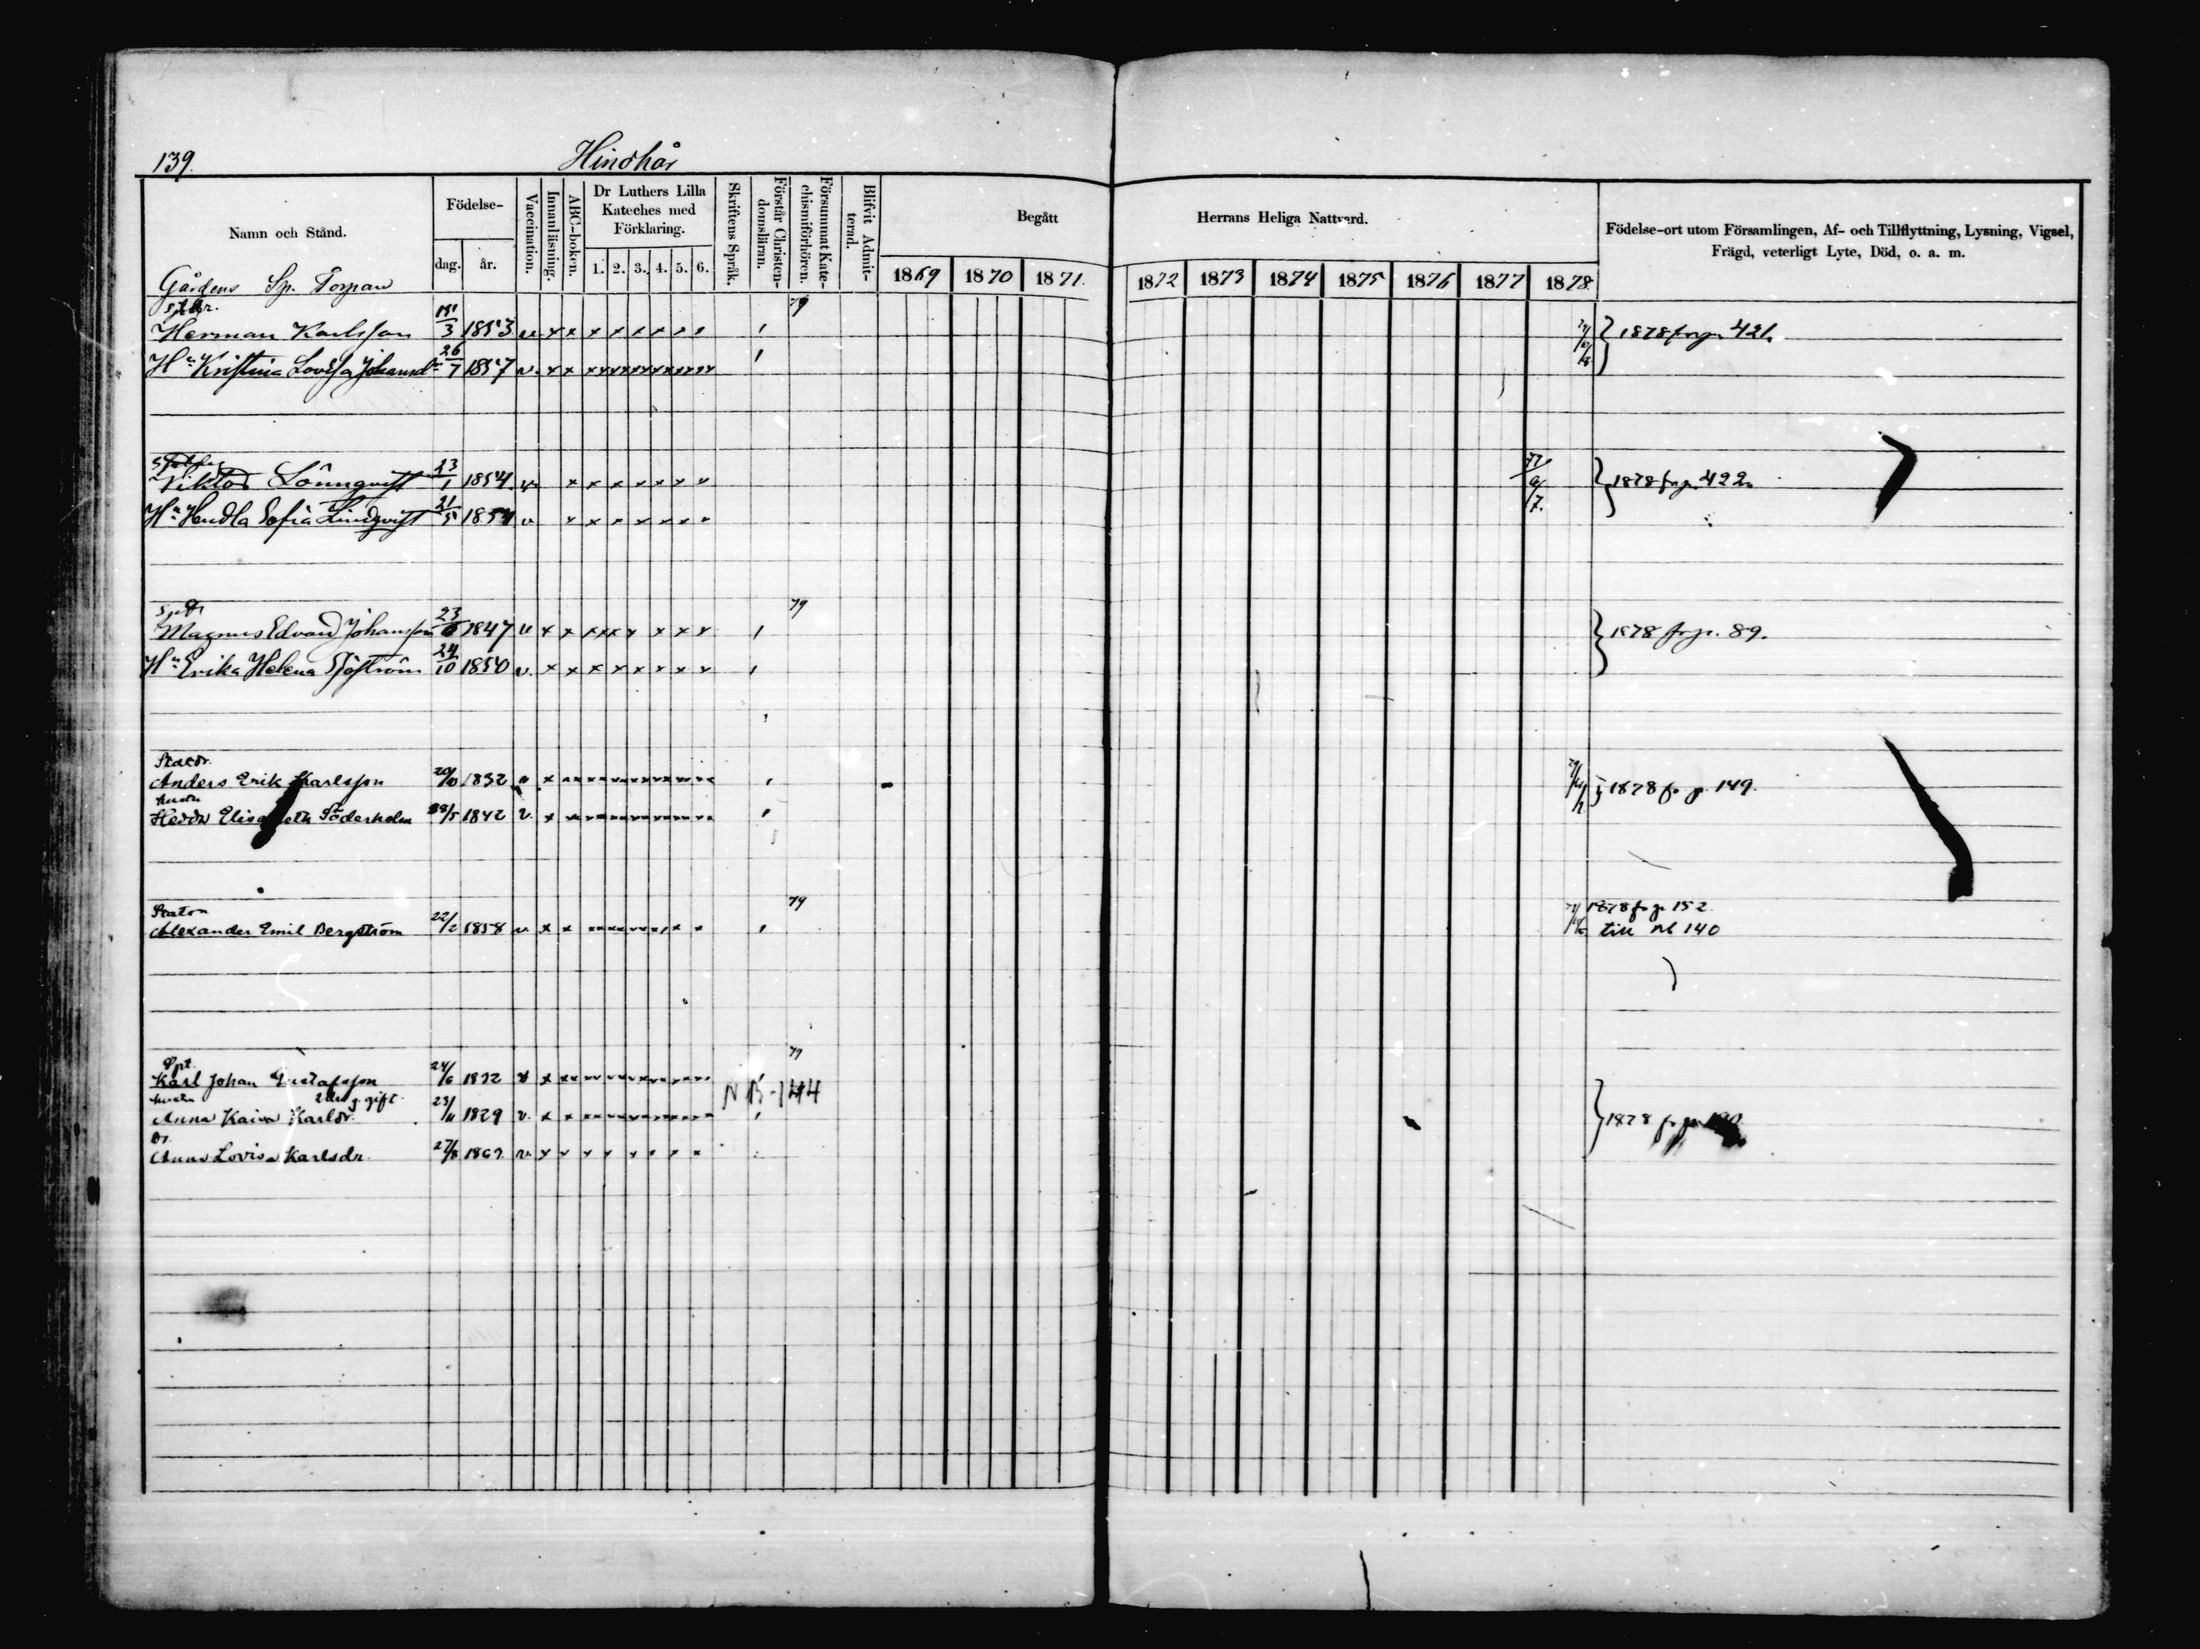 139.
Hindhår
Namn och Stånd.
Födelse-
dag. år.
Vaccination.
Innanläsning.
ABC-boken.
Dr Luthers Lilla
Kateches med
Förklaring.
1. 2. 3. 4. 5. 6.
Skriftens Språk.
Förstår Christen-
domsläran.
Försummat Kate-
chismiförhören.
Blifvit Admit-
terad.
Begått
Herrans Heliga Nattvard.
1869 1870 1871.
1872 1873 1874 1875 1876 1877 1878
Födelse-ort utom Församlingen, Af- och Tillflyttning, Lysning, Vigsel,
Frägd, veterligt Lyte, Död, o. a. m.
Gårdens Sp. Torpare
79
Herman Karlsson 3 1853 v x x x x x x x x } 1878 fr. p. 421.
Hu Kristina Lovisa Johansdr 26/7 1857 v. x x
Viktor Lönnqvist 23/1 1854 v. x x x x x x x } 1878 fr. p. 422.
Hu Hendla Sofia Lindqvist 21/5 1854 v x x x x x x x
79
Magnus Edvard Johansson 23 1847 v x x } 1878 fr. p. 89.
Hu Erika Helena Sjöström 24/10 1850 v. x x x x x x x x
Anders Erik Karlsson 1832 } 1878 fr. p. 149.
hustr.
Hedda Elisabeth Söderholm 28/5 1842 v.
79
1878 fr p 152
Alexander Emil Bergström 22/2 1858 v. x x till N 140
77
Karl Johan Gustafsson 24/6 1832
NB-144
2dra g. gift.
Anna Kaisa Karlsdr. 23/11 1829 v. } 1878 fr. p.
Dr.
Anna Lovisa Karlsdr. 27/8 1862 v. x x x x x x x x